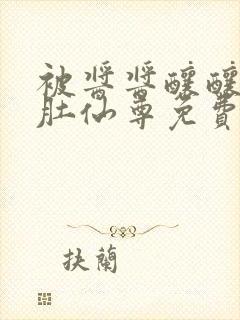 被醬醬釀釀
肚仙尊免費
抉蘭